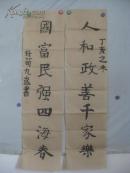 丁亥之冬
人和政善千家樂
國富民强四海春
九歲書